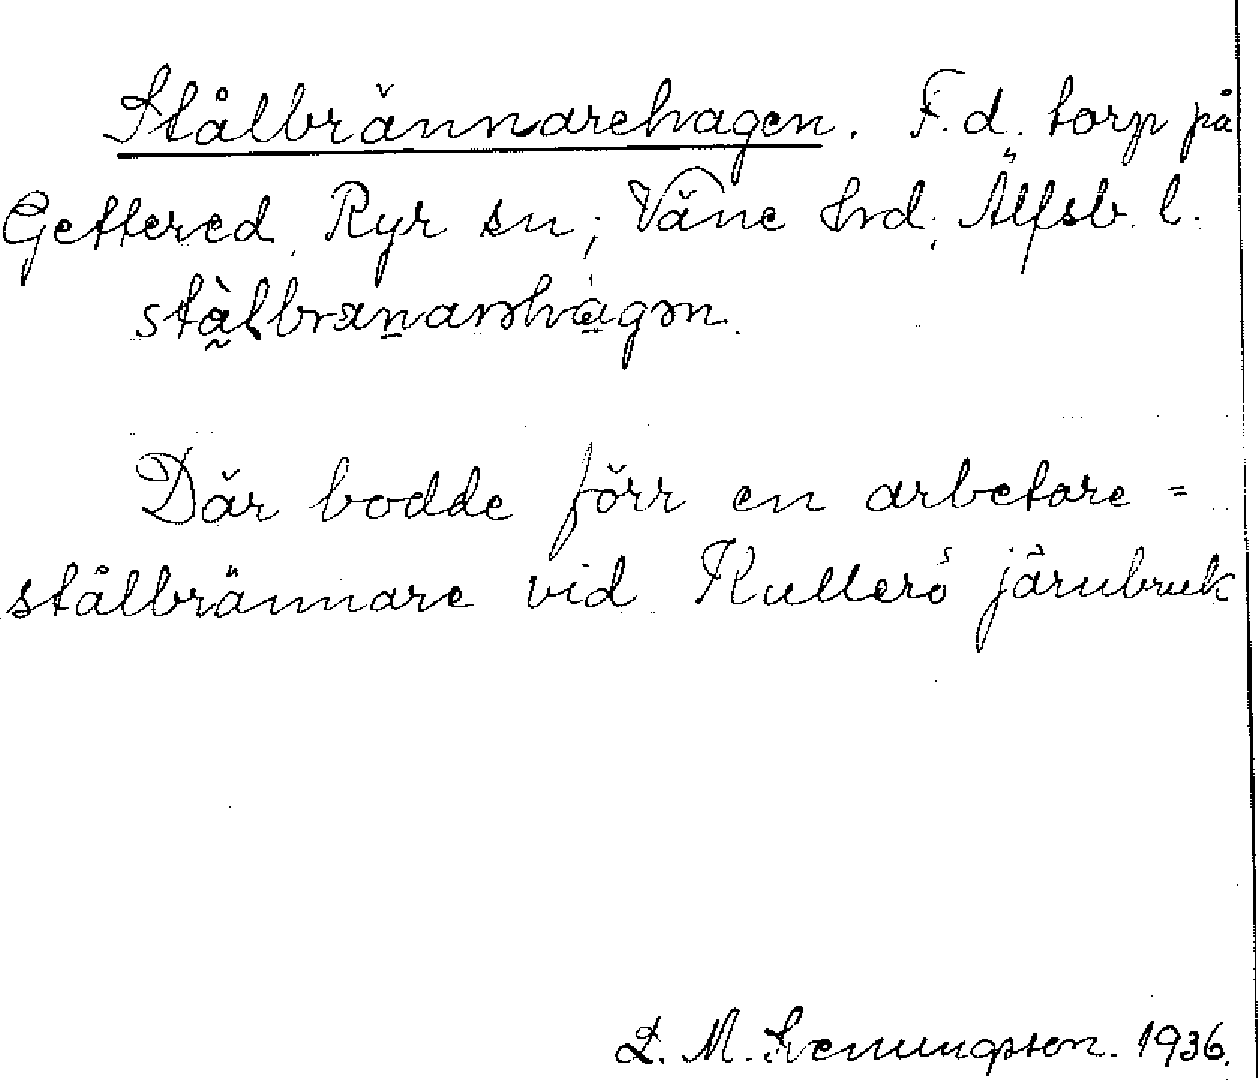 Stålbrännarehagen. F.d. torp på
Gettered, Ryr sn; Väne hrd, Älfsb. l.
stålbranarəhagən.
Där bodde förr en arbetare =
stålbrännare vid Kollerö järnbruk
L. M. Svenungsson. 1936.